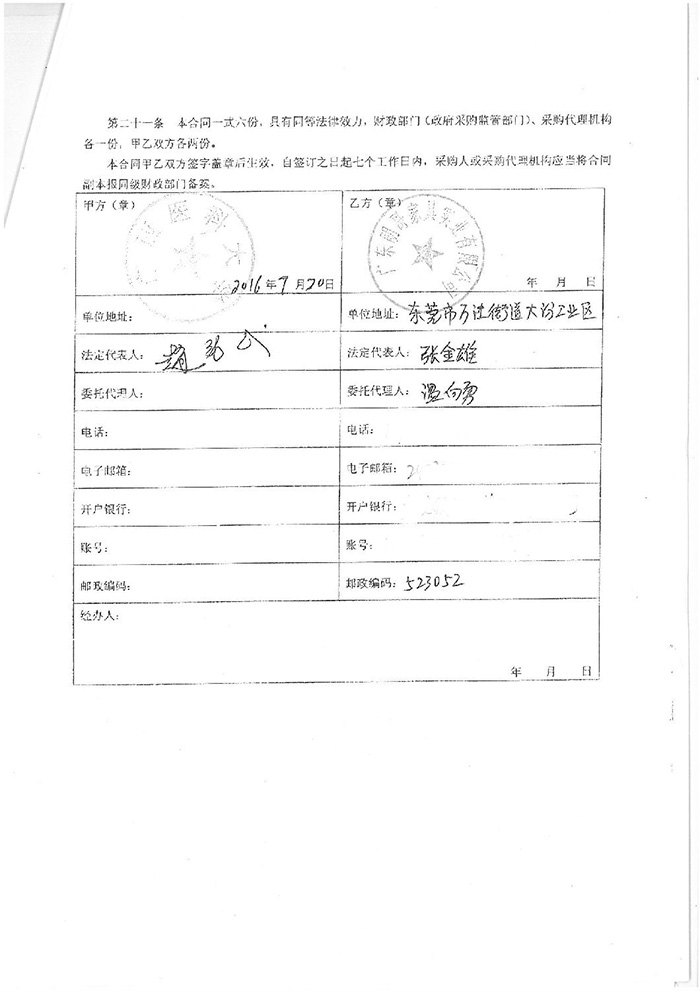 第二十一条 本合同一式六份，具有同等法律效力，财政部门（政府采购监管部门）、采购代理机构
各一份，甲乙双方各两份。
本合同甲乙双方签字盖章后生效，自签订之日起七个工作日内，采购人或采购代理机构应当将合同
副本报同级财政部门备案。
甲方（章）
医科大
2016年9月20日
乙方（章）
家具实业有限公司
年 月 日
单位地址：
单位地址：东莞市万江街道大汾工业区
法定代表人：
法定代表人：张金雄
委托代理人：
委托代理人：温向勇
电话：
电话：
电子邮箱：
电子邮箱：
开户银行：
开户银行：
账号：
账号：
邮政编码：
邮政编码：523052
经办人：
年 月 日